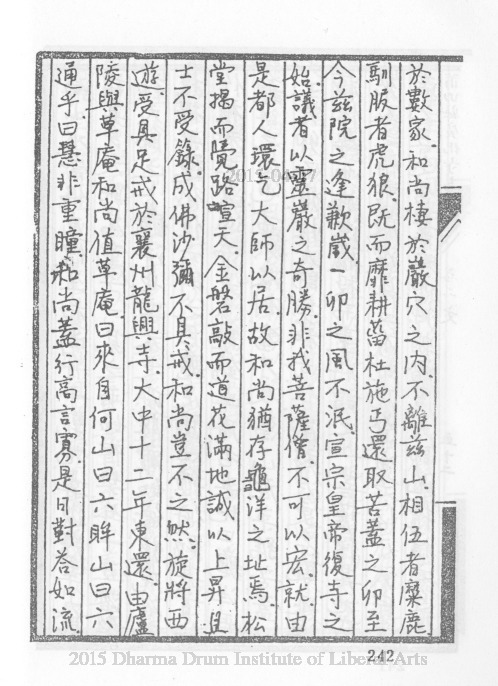 於數家.和尚棲於嚴穴之内.不離茲山.相伍者麋鹿.
馴服者虎狼.既而靡耕蓄杜施丐.還取苦蓋之卯至
今.茲院之逢歉歲一卯之風不泯.宣宗皇帝復寺之
始.議者以靈巖之奇勝.非我菩薩僧.不可以宏就.由
是都人環乞大師以居.故和尚猶存龜洋之址焉.松
堂揭而競路喧天.金磐敲而道花滿地.誠以上昇且
士不受錄.成佛沙彌不具戒.和尚豈不之然.旋將西
遊.受具足戒於襄州龍興寺.大中十二年東還.由廬
陵與草庵和尚值草庵.曰來自何山.曰六眸山.曰六
通乎.曰慧非重瞳.和尚蓋行高言寡.是日對荅如流
242
2015 Dharma Drum Institute of Liberal Arts